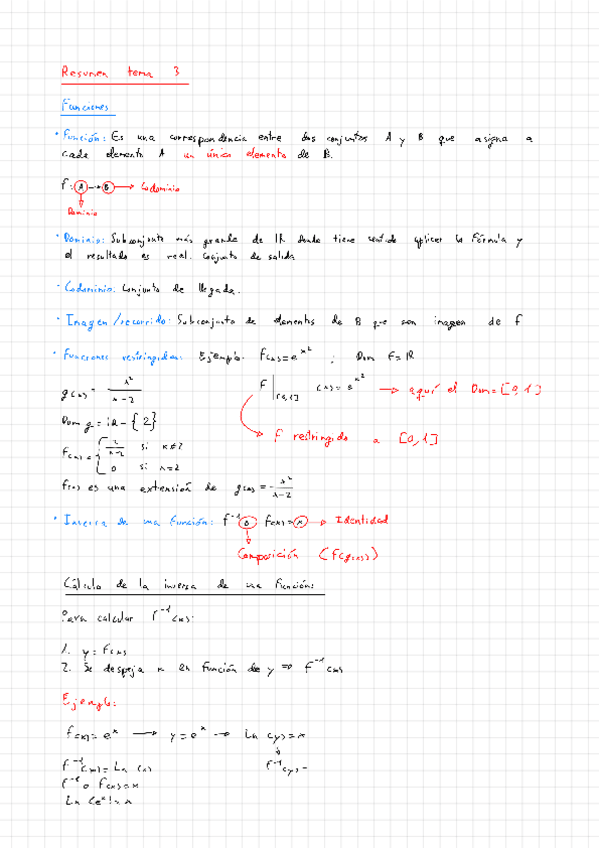 Resumen tema 3
Funciones
· Función: Es una correspondencia entre dos conjuntos A y B que asigna a
cada elemento A un único elemento de B.
f: A → B → Codominio
Dominio
· Dominio: Subconjunto más grande de IR donde tiene sentido aplicar la fórmula y
el resultado es real. Conjunto de salida
· Codominio: Conjunto de llegada.
· Imagen/recorrido: Subconjunto de elementos de B que son imagen de f
· Funciones restringidas: Ejemplo: f(x)=e^x² ; Dom f=IR
g(x)= x²/(x-2)
f|[0,1] (x)=e^x² → aquí el Dom=[0,1]
Dom g = IR-{2}
f restringido a [0,1]
f(x)= { 2/(x-2) si x≠2
0 si x=2
f(x) es una extensión de g(x)= x²/(x-2)
· Inversa de una función: f⁻¹ o f(x)=x → Identidad
Composición (f(g(x)))
Cálculo de la inversa de una función:
Para calcular f⁻¹(x):
1. y=f(x)
2. Se despeja x en función de y ⇒ f⁻¹(x)
Ejemplo:
f(x)=e^x → y=e^x → Ln(y)=x
f⁻¹(x)=Ln(x)
f⁻¹(y)=
f⁻¹ o f(x)=x
Ln(e^x)=x